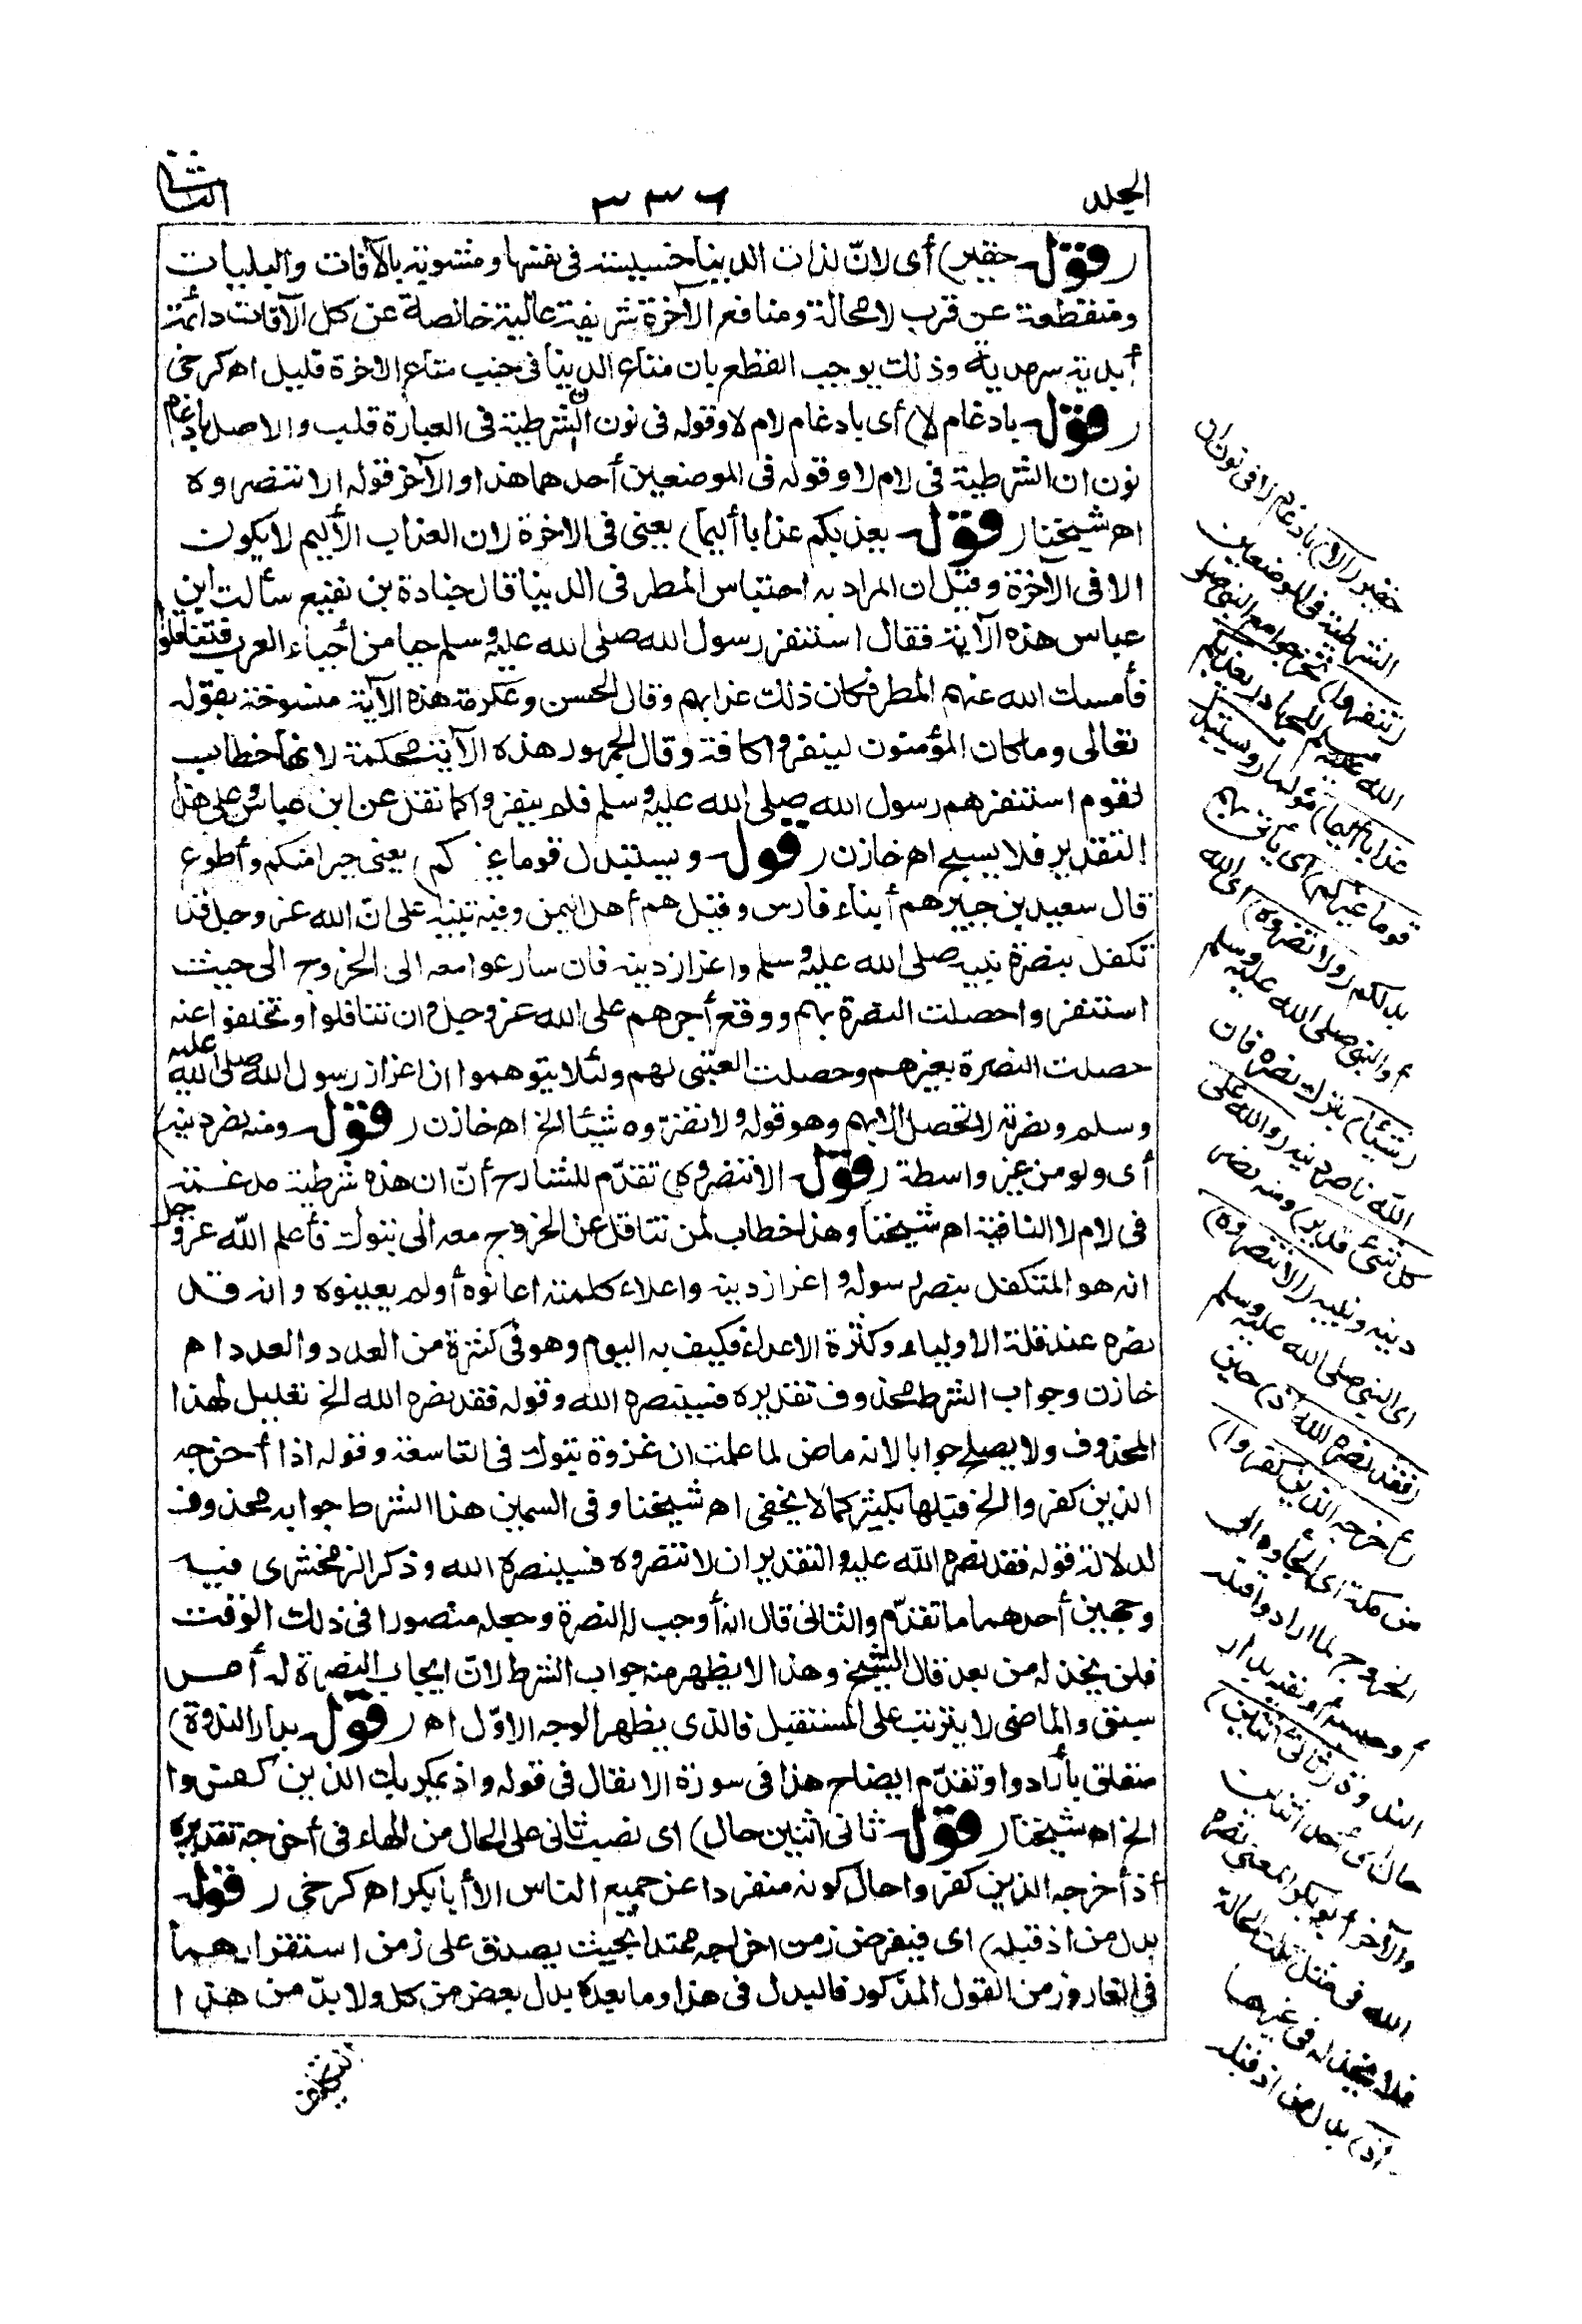 الجلد
٣٣٦
الثانى
(قوله حقير) أى لانّ لذات الدنيا خسيسة فى نفسها ومشوبة بالآفات والبليات
ومنقطعة عن قرب لا محالة ومنافع الآخرة شريفة عالية خالصة عن كل الآفات دائمة
أبدية سرمدية وذلك يوجب القطع بان متاع الدنيا فى جنب متاع الاخرة قليل اه كرخى
(قوله بادغام لا) أى بادغام لام لا وقوله فى نون ان الشرطية فى العبارة قلب والاصل بادغام
نون ان الشرطية فى لام لا وقوله فى الموضعين أحدهما هذا والآخر قوله الا تنصروه
اه شيخنا (قوله يعذبكم عذابا أليما) يعنى فى الاخرة لان العذاب الأليم لا يكون
الا فى الآخرة وقيل ان المراد به احتباس المطر فى الدنيا قال جنادة بن نفيع سألت ابن
عباس هذه الآية فقال استنفر رسول الله صلى الله عليه وسلم حيا من أحياء العرب فتثاقلوا
فأمسك الله عنهم المطر فكان ذلك عذابهم وقال الحسن وعكرمة هذه الآية منسوخة بقوله
تعالى وما كان المؤمنون لينفروا كافة وقال الجمهور هذه الآية محكمة لانها خطاب
لقوم استنفرهم رسول الله صلى الله عليه وسلم فلم ينفروا كما نقل عن ابن عباس وعلى هذا
التقدير فلا يسبح اه خازن (قوله ويستبدل قوما غيركم) يعنى خيرا منكم وأطوع
قال سعيد بن جبير هم أبناء فارس وقيل هم أهل اليمن وفيه تنبيه على انّ الله عز وجل قد
تكفل بنصرة نبيه صلى الله عليه وسلم واعزاز دينه فان سارعوا معه الى الخروج الى حيث
استنفروا حصلت النصرة بهم ووقع أجرهم على الله عز وجل وان تثاقلوا وتخلفوا عنه
حصلت النصرة بغيرهم وحصلت العتبى لهم ولئلا يتوهموا ان اعزاز رسول الله صلى الله عليه
وسلم ونصرته لا تحصل الا بهم وهو قوله ولا تضروه شيئا الخ اه خازن (قوله ومنه نصر دينه)
أى ولو من غير واسطة (قوله الا تنصروه) تقدّم للشارح أنّ ان هذه شرطية مدغمة
فى لام لا النافية اه شيخنا وهذا خطاب لمن تثاقل عن الخروج معه الى تبوك فأعلم الله عز وجل
انه هو المتكفل بنصر رسوله واعزاز دينه واعلاء كلمته اعانوه أو لم يعينوه وانه قد
نصره عند قلة الاولياء وكثرة الاعداء فكيف به اليوم وهو فى كثرة من العدد والعدد اه
خازن وجواب الشرط محذوف تقديره فسينصره الله وقوله فقد نصره الله الخ تعليل لهذا
المحذوف ولا يصلح جوابا لانه ماض لما علمت ان غزوة تبوك فى التاسعة وقوله اذا أخرجه
الذين كفروا الخ قبلها بكثير كما لا يخفى اه شيخنا وفى السمين هذا الشرط جوابه محذوف
لدلالة قوله فقد نصره الله عليه والتقدير ان لا تنصروه فسينصره الله وذكر الزمخشرى فيه
وجهين أحدهما ما تقدّم والثانى قال انه أوجب له النصرة وجعله منصورا فى ذلك الوقت
فلن يخذله من بعد قال الشيخ وهذا لا يظهر منه جواب الشرط لانّ ايجاب النصرة له أمر
سبق والماضى لا يترتب على المستقبل فالذى يظهر الوجه الاوّل اه (قوله بدار الندوة)
متعلق بأرادوا وتقدّم ايضاح هذا فى سورة الانفال فى قوله واذ يمكر بك الذين كفروا
الخ اه شيخنا (قوله ثانى اثنين حال) اى نصب ثانى على الحال من الهاء فى أخرجه تقديره
اذ أخرجه الذين كفروا حال كونه منفردا عن جميع الناس الا أبا بكر اه كرخى (قوله
بدل من اذ قبله) اى فيفرض زمن اخراجه ممتدا بحيث يصدق على زمن استقرارهما
فى الغار وزمن القول المذكور فالبدل فى هذا وما بعده بدل بعض من كل ولا بدّ من هذا
حقير (الا) بادغام لا فى نون ان
الشرطية فى الموضعين
(تنفروا) تخرجوا مع النبى صلى
الله عليه وسلم للجهاد (يعذبكم
عذابا أليما) مؤلما (ويستبدل
قوما غيركم) اى يأتى بهم
بدلكم (ولا تضروه) اى الله
أو النبى صلى الله عليه وسلم
(شيئا) بترك نصره فان
الله ناصر دينه (والله على
كل شئ قدير) ومنه نصر
دينه ونبيه (الا تنصروه)
اى النبى صلى الله عليه وسلم
(فقد نصره الله اذ) حين
(أخرجه الذين كفروا)
من مكة اى ألجأوه الى
الخروج لما ارادوا قتله
أو حبسه أو نفيه بدار
الندوة (ثانى اثنين)
حال اى أحد اثنين
والآخر أبو بكر المعنى نصره
الله فى مثل تلك الحالة
فلا يخذله فى غيرها
(اذ) بدل من اذ قبله